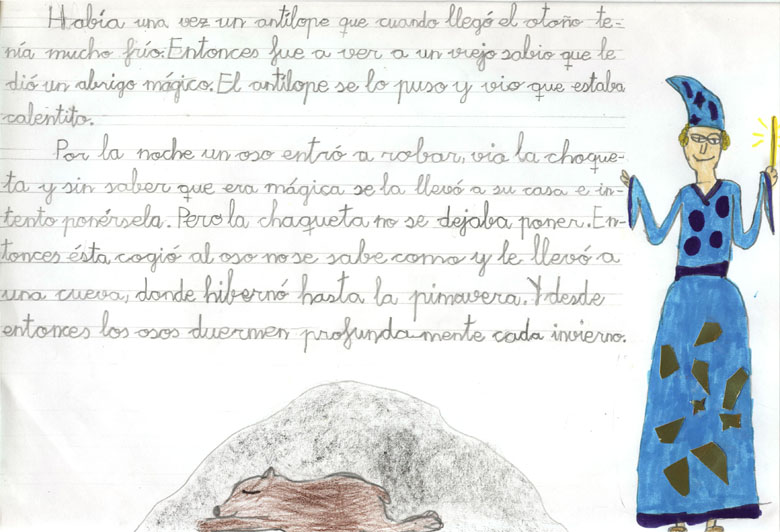 Había una vez un antílope que cuando llegó el otoño te-
nía mucho frío. Entonces fue a ver a un viejo sabio que le
dió un abrigo mágico. El antílope se lo puso y vio que estaba
calentito.
Por la noche un oso entró a robar, vio la chaque-
ta y sin saber que era mágica se la llevó a su casa e in-
tento ponérsela. Pero la chaqueta no se dejaba poner. En-
tonces ésta cogió al oso no se sabe como y le llevó a
una cueva, donde hibernó hasta la pimavera. Y desde
entonces los osos duermen profunda mente cada invierno.